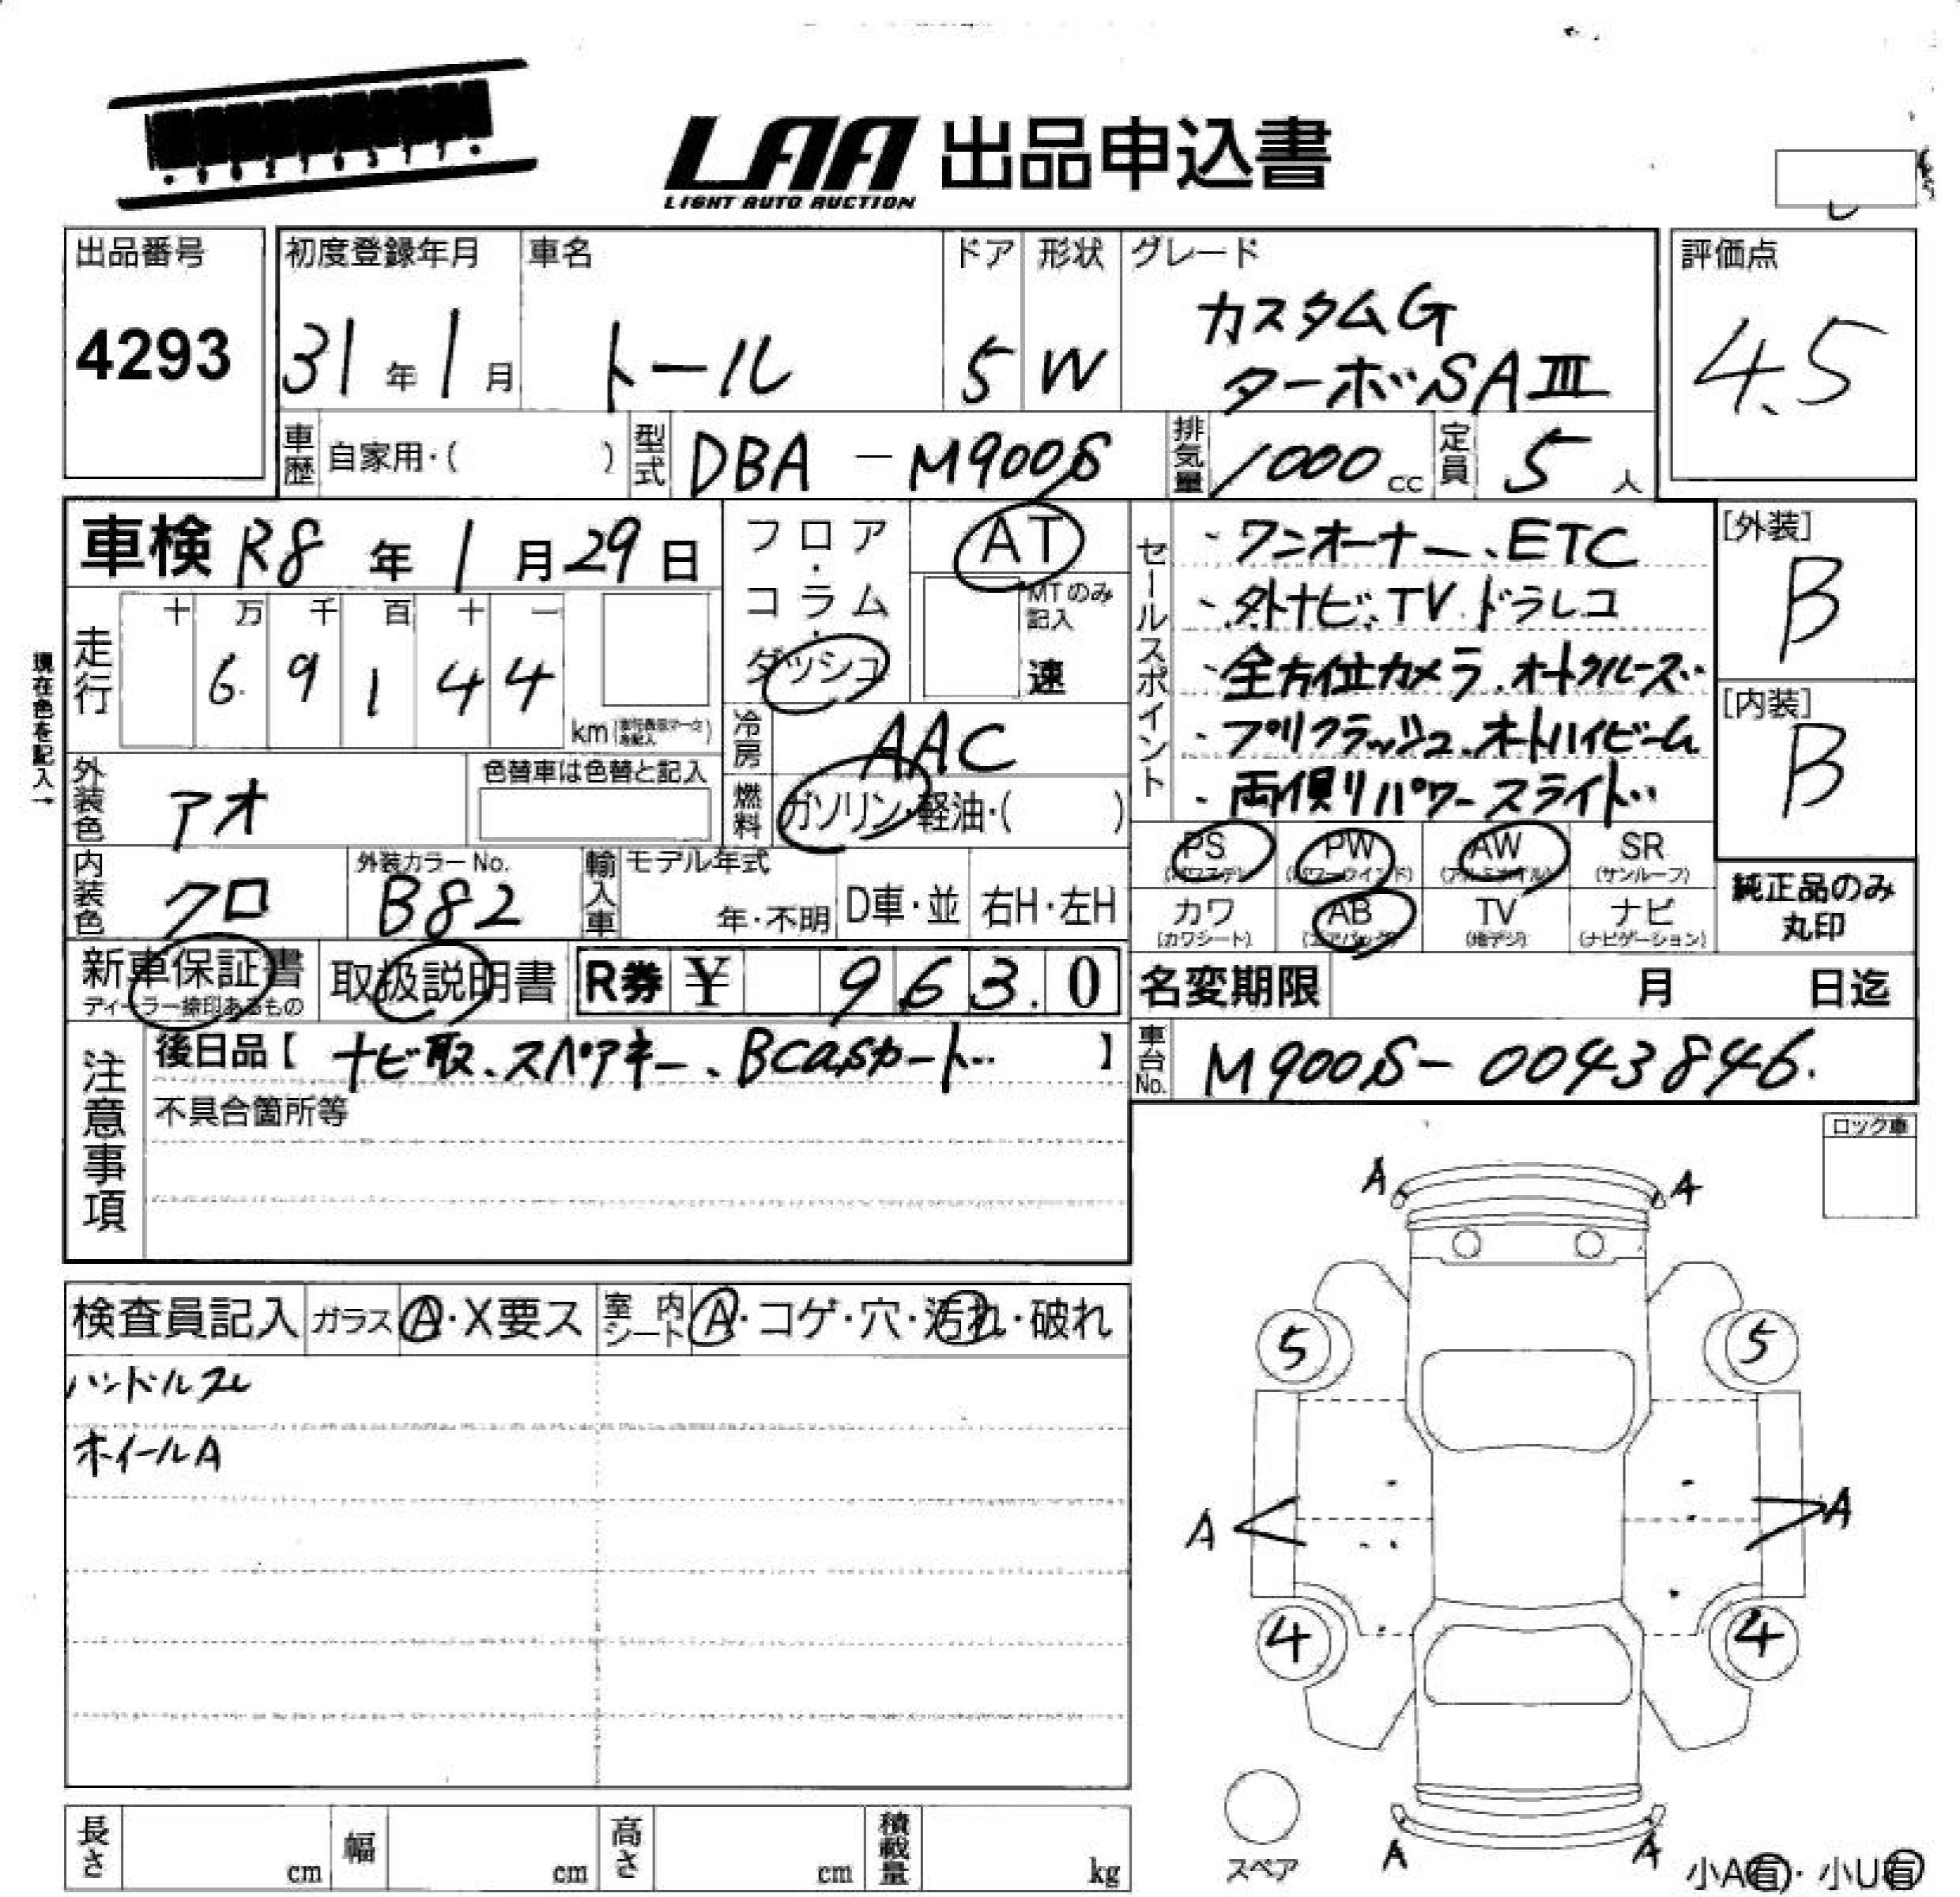 LAA 出品申込書
LIGHT AUTO AUCTION
出品番号
4293
初度登録年月
31年1月
車名
トール
ドア
5
形状
W
グレード
カスタムG
ターボSAⅢ
評価点
4.5
車歴 自家用・( )
型式 DBA-M900S
排気量 1000cc
定員 5人
車検 R8年1月29日
走行 十万千百十一
69144
km
現在色を記入→
フロア・
コラム・
ダッシュ
AT
MTのみ
記入
速
冷房 AAC
燃料 ガソリン・軽油・( )
セールスポイント
・ワンオーナー、ETC
・外ナビ、TV、ドラレコ
・全方位カメラ、オートクルーズ
・プリクラッシュ、オートハイビーム
・両側パワースライド
[外装]
B
[内装]
B
外装色 アオ
色替車は色替と記入
内装色 クロ
外装カラーNo.
B82
輸入車
モデル年式
年・不明
D車・並
右H・左H
PS
PW
AW
SR
(サンルーフ)
カワ
(カワシート)
AB
TV
(地デジ)
ナビ
(ナビゲーション)
純正品のみ
丸印
新車保証書
ディーラー捺印あるもの
取扱説明書
R券 ¥ 9,630
名変期限 月 日迄
車台No. M900S-0043846.
注意事項
後日品【ナビ取、スペアキー、Bcasカード】
不具合箇所等
ロック車
検査員記入
ガラス A・X要ス
室内シート A・コゲ・穴・汚れ・破れ
ハンドルスレ
ホイールA
A A
5 5
A A
4 4
A A
スペア
小A有・小U有
長さ cm
幅 cm
高さ cm
積載量 kg